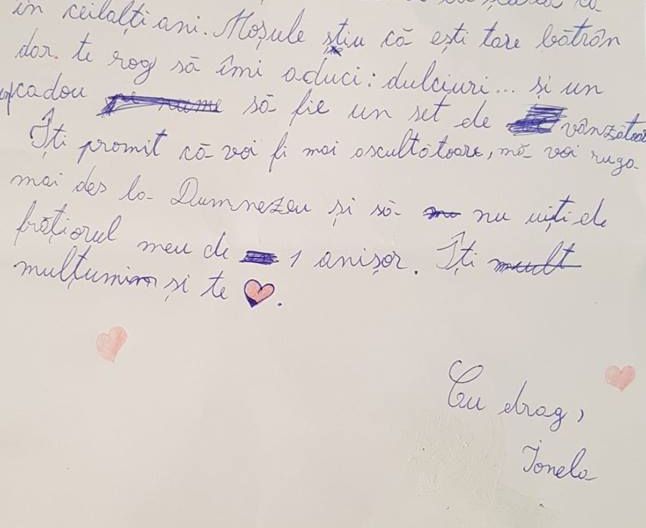 în ceilalți ani. Moșule știu că ești tare bătrân
dar te rog să îmi aduci: dulciuri... si un
cadou să fie un set de vânzătoare
Îți promit că voi fi mai ascultătoare, mă voi ruga
mai des la Dumnezeu și să nu uiți de
frățiorul meu de 1 anișor. Îți mult
mulțumim și te ♥.
Cu drag,
Ionela